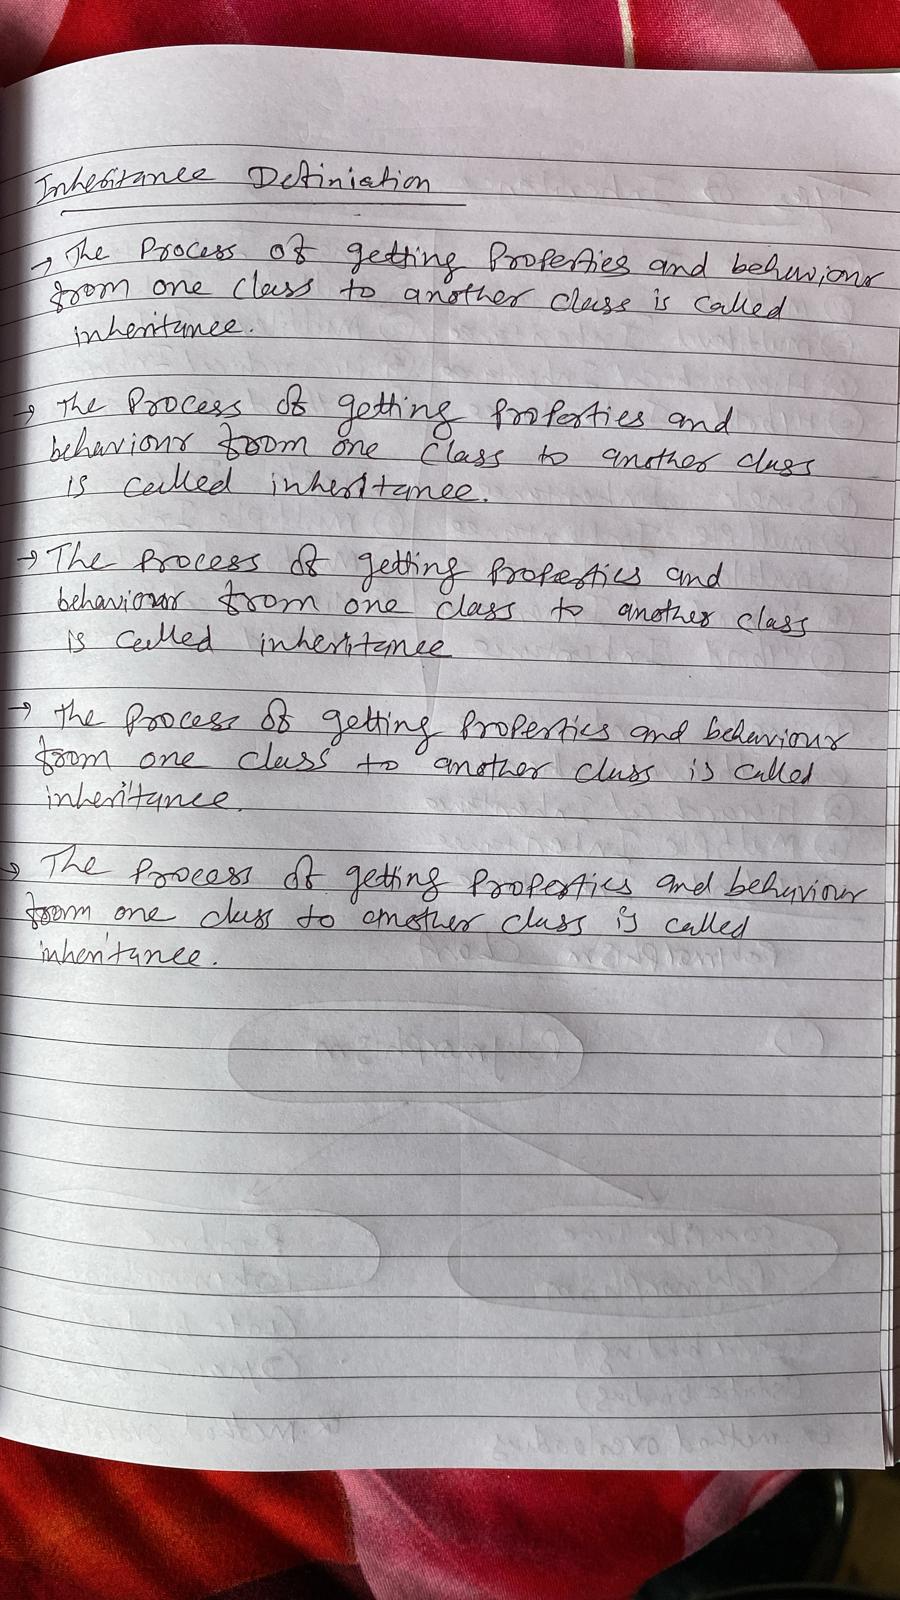 Inheritance Definiation
→ The Process of getting Properties and behaviour
from one class to another class is called
inheritance.
→ The Process of getting Properties and
behaviour from one class to another class
is called inheritance.
→ The Process of getting Properties and
behaviour from one class to another class
is called inheritance
→ The Process of getting Properties and behaviour
from one class to another class is called
inheritance.
→ The Process of getting Properties and behaviour
from one class to another class is called
inheritance.